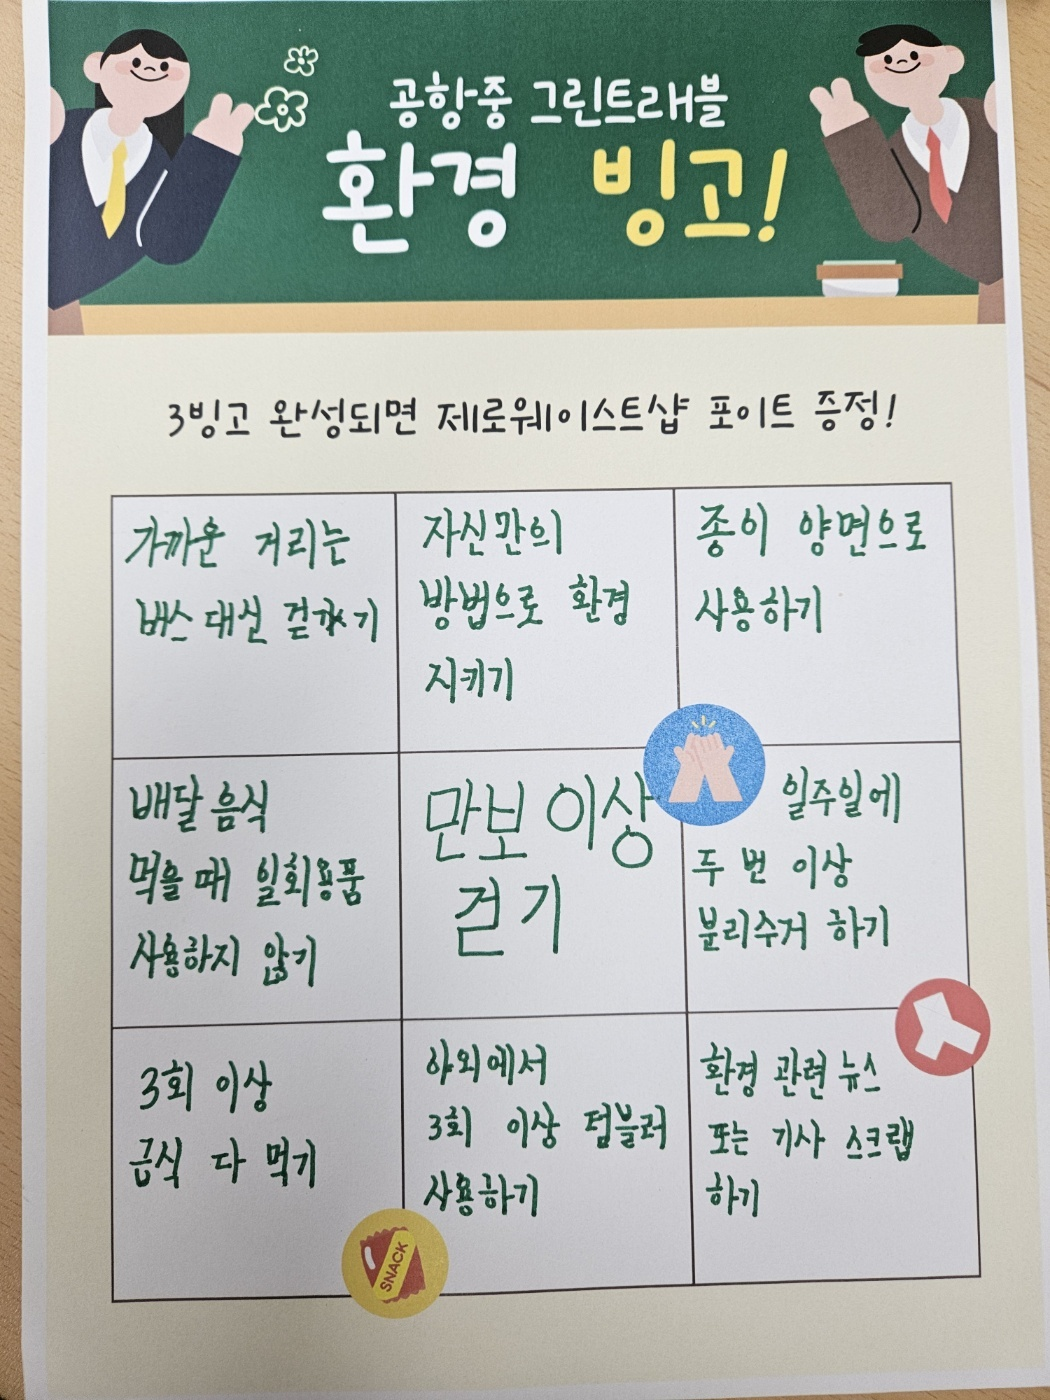 공항중 그린트래블
환경 빙고!
3빙고 완성되면 제로웨이스트샵 포이트 증정!
가까운 거리는
버스 대신 걷기
자신만의
방법으로 환경
지키기
종이 양면으로
사용하기
배달 음식
먹을 때 일회용품
사용하지 않기
만보 이상
걷기
일주일에
두 번 이상
분리수거 하기
3회 이상
급식 다 먹기
야외에서
3회 이상 텀블러
사용하기
SNACK
환경 관련 뉴스
또는 기사 스크랩
하기